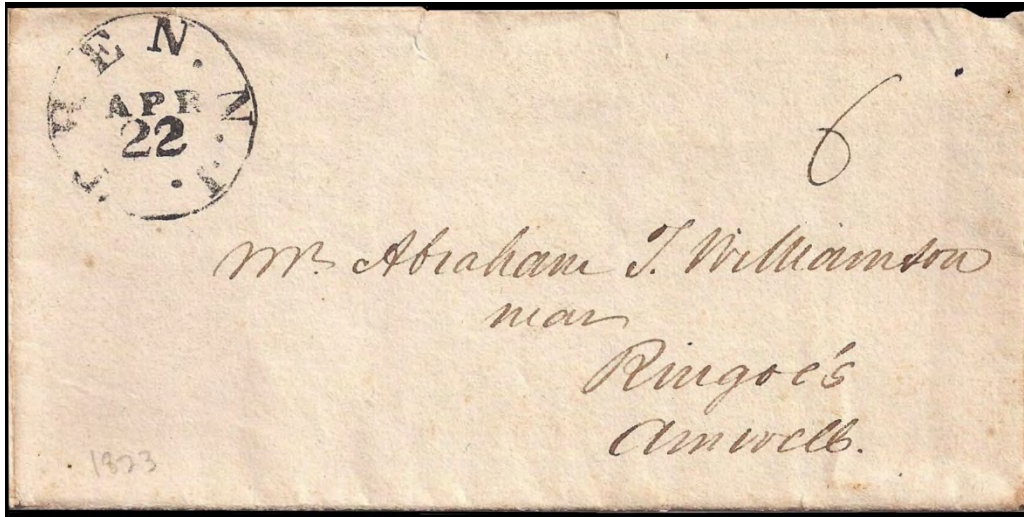 TREN. N.J.
APR
22
6
Mr. Abraham T. Williamson
near
Ringoe's
Amwell.
1823